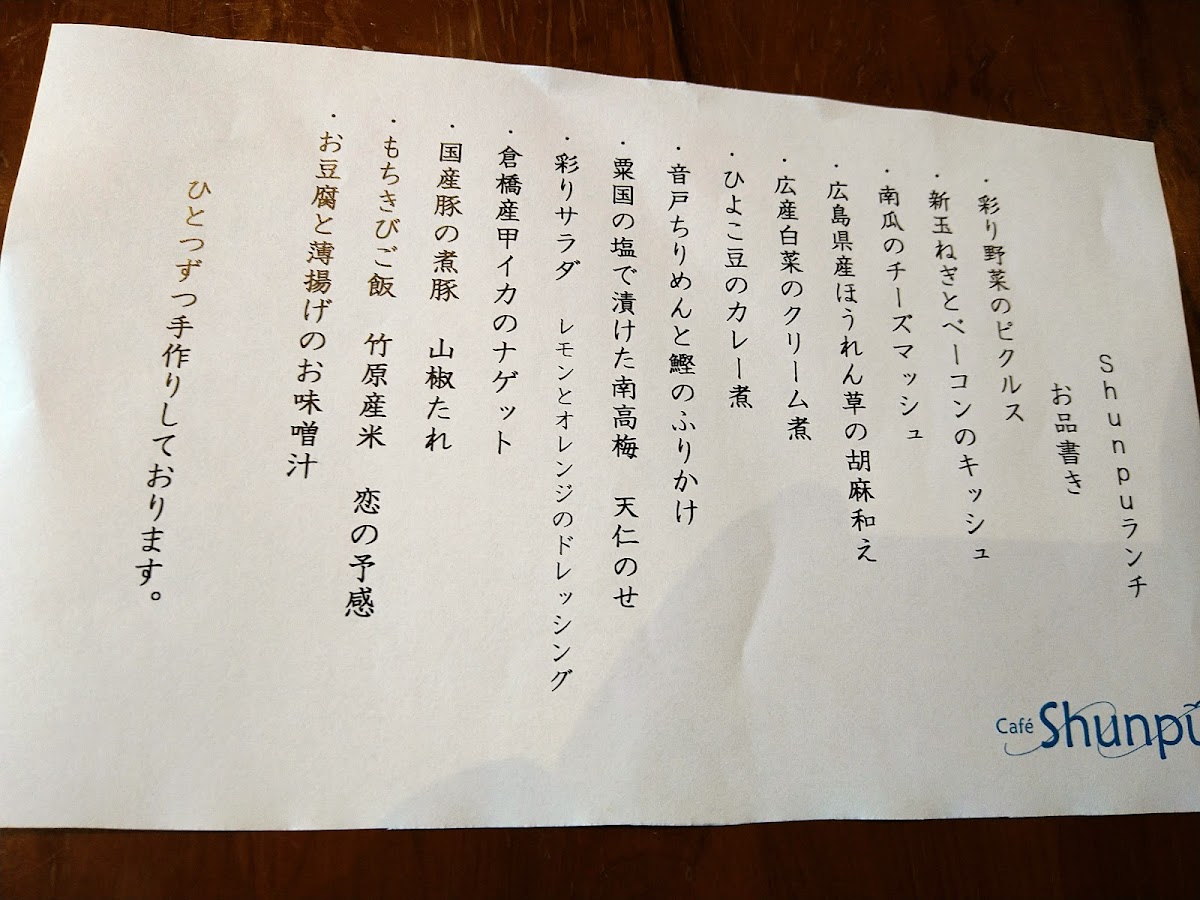 Shunpuランチ
お品書き
・彩り野菜のピクルス
・新玉ねぎとベーコンのキッシュ
・南瓜のチーズマッシュ
・広島県産ほうれん草の胡麻和え
・広産白菜のクリーム煮
・ひよこ豆のカレー煮
・音戸ちりめんと鰹のふりかけ
・粟国の塩で漬けた南高梅　天仁のせ
・彩りサラダ　レモンとオレンジのドレッシング
・倉橋産甲イカのナゲット
・国産豚の煮豚　山椒たれ
・もちきびご飯　竹原産米　恋の予感
・お豆腐と薄揚げのお味噌汁
ひとつずつ手作りしております。
Café Shunpū